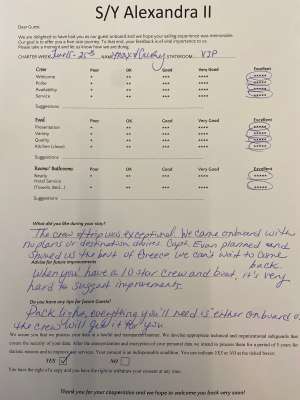 S/Y Alexandra II
Dear Guest,
We are delighted to have had you as our guest onboard and we hope your sailing experience was memorable.
Our goal is to offer you a five star journey. To that end, your feedback is of vital importance to us.
Please take a moment and let us know how we are doing.
CHARTER WEEK June 18-25th NAME STATEROOM VIP
Crew Poor OK Good Very Good Excellent
Welcome * ** *** **** *****
Polite * ** *** **** *****
Availability * ** *** **** *****
Service * ** *** **** *****
Suggestions
Food Poor OK Good Very Good Excellent
Presentation * ** *** **** *****
Variety * ** *** **** *****
Quality * ** *** **** *****
Kitchen (clean) * ** *** **** *****
Suggestions
Rooms/ Bathrooms Poor OK Good Very Good Excellent
Beauty * ** *** **** *****
Hotel Service
(Towels, Bed...) * ** *** **** *****
Suggestions
What did you like during your stay?
The crew & trip was exceptional. We came onboard with
no plans or destination desires. Capt. Evan planned and
showed us the best of Greece we can't wait to come
back
Advice for future improvements
When you have a 10 star crew and boat, it's very
hard to suggest improvements.
Do you have any tips for future Guests?
Pack light, everything you'll need is either onboard or
the crew will get it for you
We assure you that we process your data in a lawful and transparent manner. We develop appropriate technical and organizational safeguards that
ensure the security of your data. After the anonymization and encryption of your personal data we intend to process them for a period of 5 years for
statistic reasons and to improve our services. Your consent is an indispensable condition. You can indicate YES or NO at the related boxes:
YES NO
You have the right of a copy and you have the right to withdraw your consent at any time.
Thank you for your cooperation and we hope to welcome you back very soon!